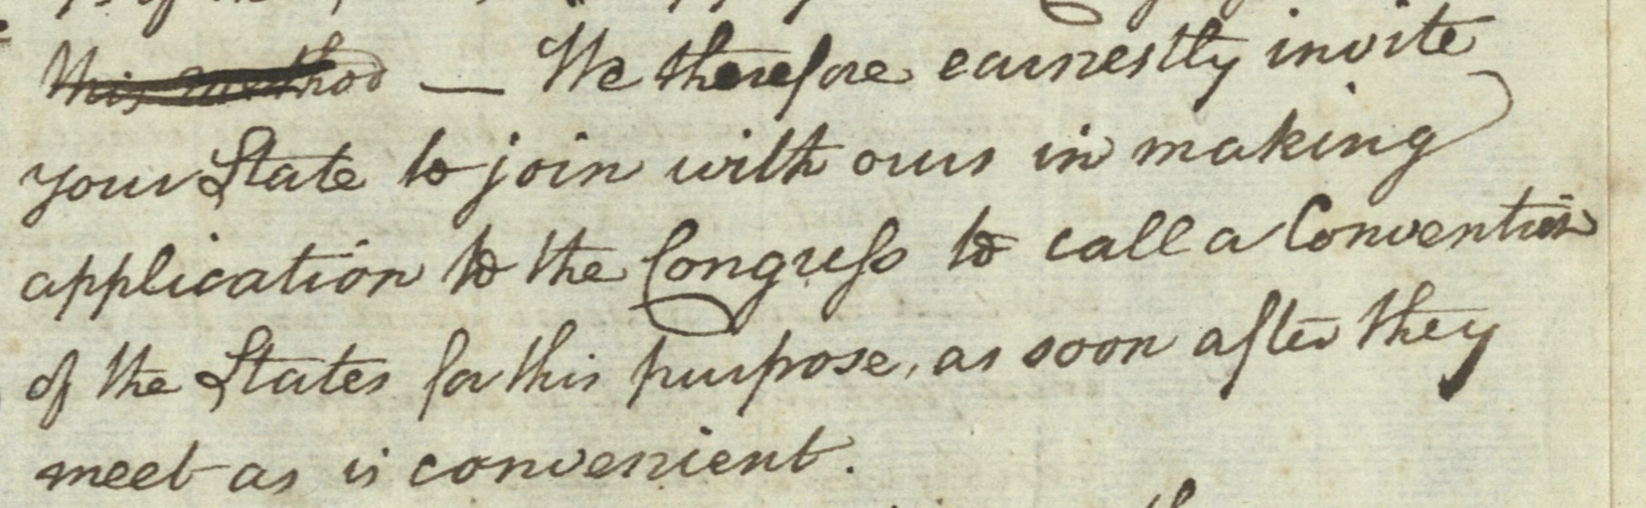 this method — We therefore earnestly invite
your State to join with ours in making
application to the Congress to call a Convention
of the States for this purpose, as soon after they
meet as is convenient.